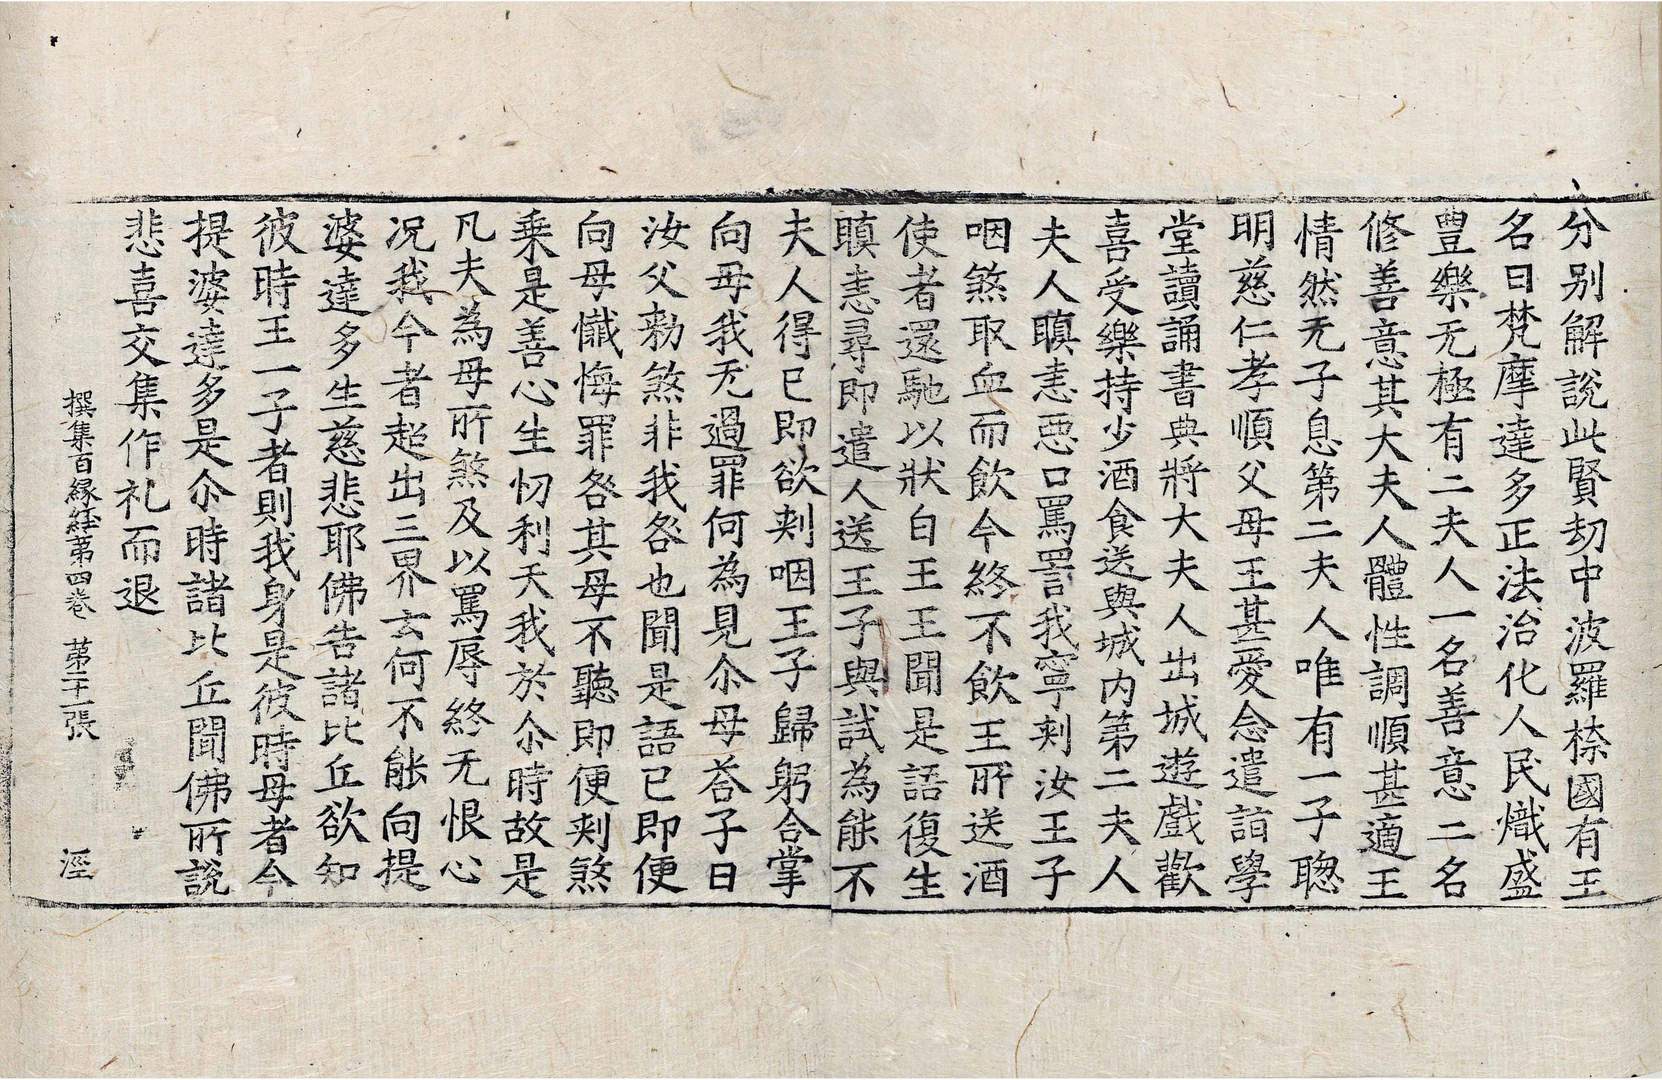 分别解說此賢劫中波羅㮈國有王
名曰梵摩達多正法治化人民熾盛
豊樂无極有二夫人一名善意二名
修善意其大夫人體性調順甚適王
情然无子息第二夫人唯有一子聦
明慈仁孝順父母王甚愛念遣詣學
堂讀誦書典將大夫人出城遊戲歡
喜受樂持少酒食送與城内第二夫人
夫人瞋恚惡口罵詈我寧刾汝王子
咽煞取血而飲今終不飲王所送酒
使者還馳以狀白王王聞是語復生
瞋恚尋即遣人送王子與試為能不
夫人得已即欲刾咽王子歸躬合掌
向母我无過罪何為見尒母荅子曰
汝父勑煞非我咎也聞是語已即便
向母懺悔罪咎其母不聽即便刾煞
乗是善心生忉利天我於尒時故是
凡夫為母所煞及以罵辱終无恨心
况我今者超出三界云何不能向提
婆達多生慈悲耶佛告諸比丘欲知
彼時王一子者則我身是彼時母者今
提婆達多是尒時諸比丘聞佛所說
悲喜交集作礼而退
撰集百縁経第四巻 第二十二張 涇